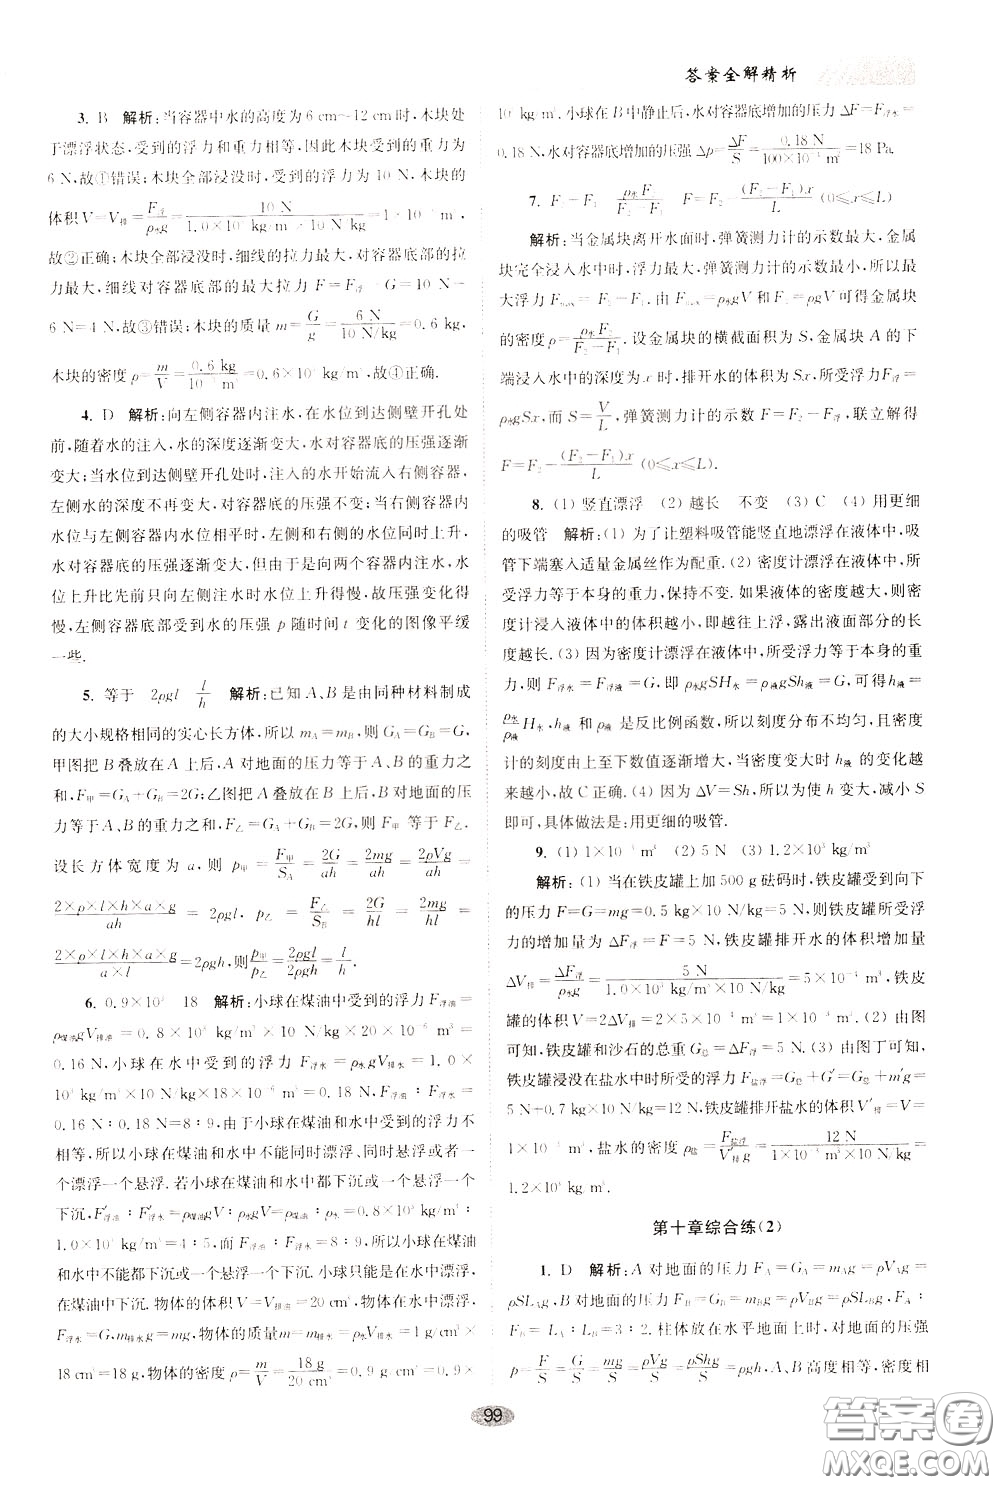 答案全解精析
3. B 解析:当容器中水的高度为 6 cm~12 cm时,木块处
于漂浮状态,受到的浮力和重力相等,因此木块受到的重力为
6 N,故①错误;木块全部浸没时,受到的浮力为 10 N,木块的
体积V=V排=F浮/ρ水g=10 N/(1.0×10³ kg/m³×10 N/kg)=1×10⁻³ m³,
故②正确;木块全部浸没时,细线的拉力最大,对容器底部的拉
力最大,细线对容器底部的最大拉力 F=F浮-G=10 N-
6 N=4 N,故③错误;木块的质量 m=G/g=6 N/(10 N/kg)=0.6 kg,
木块的密度ρ=m/V=0.6 kg/(10⁻³ m³)=0.6×10³ kg/m³,故④正确.
4. D 解析:向左侧容器内注水,在水位到达侧壁开孔处
前,随着水的注入,水的深度逐渐变大,水对容器底的压强逐渐
变大;当水位到达侧壁开孔处时,注入的水开始流入右侧容器,
左侧水的深度不再变大,对容器底的压强不变;当右侧容器内
水位与左侧容器内水位相平时,左侧和右侧的水位同时上升,
水对容器底的压强逐渐变大,但由于是向两个容器内注水,水
位上升比先前只向左侧注水时水位上升得慢,故压强变化得
慢,左侧容器底部受到水的压强 p 随时间 t 变化的图像平缓
一些.
5. 等于 2ρgl l/h 解析:已知A、B是由同种材料制成
的大小规格相同的实心长方体,所以 mA=mB,则 GA=GB=G.
甲图把 B 叠放在 A 上后,A 对地面的压力等于 A、B 的重力之
和,F甲=GA+GB=2G;乙图把 A 叠放在 B 上后,B 对地面的压
力等于A、B的重力之和,F乙=GA+GB=2G,则 F甲 等于 F乙.
设长方体宽度为 a,则 p甲=F甲/SA=2G/ah=2mg/ah=2ρVg/ah=
2×ρ×l×h×a×g/ah=2ρgl, p乙=F乙/SB=2G/hl=2mg/hl=
2×ρ×l×h×a×g/a×l=2ρgh,则p甲/p乙=2ρgl/2ρgh=l/h.
6. 0.9×10³ 18 解析:小球在煤油中受到的浮力F浮油=
ρ煤油gV排油=0.8×10³ kg/m³×10 N/kg×20×10⁻⁶ m³=
0.16 N,小球在水中受到的浮力 F浮水=ρ水gV排水=1.0×
10³ kg/m³×10 N/kg×18×10⁻⁶ m³=0.18 N,F浮油:F浮水=
0.16 N:0.18 N=8:9,由于小球在煤油和水中受到的浮力不
相等,所以小球在煤油和水中不能同时漂浮、同时悬浮或者一
个漂浮一个悬浮.若小球在煤油和水中都下沉或一个悬浮一个
下沉,F′浮油:F′浮水=ρ煤油gV:ρ水gV=ρ煤油:ρ水=0.8×10³ kg/m³:
1.0×10³ kg/m³=4:5,而 F浮油:F浮水=8:9,所以小球在煤油
和水中不能都下沉或一个悬浮一个下沉.小球只能是在水中漂浮,
在煤油中下沉.物体的体积V=V排油=20 cm³,物体在水中漂浮,
F浮水=G,m排水g=mg,物体的质量m=m排水=ρ水V排水=1 g/cm³×
18 cm³=18 g,物体的密度 ρ=m/V=18 g/20 cm³=0.9 g/cm³=0.9×
10³ kg/m³.小球在 B 中静止后,水对容器底增加的压力 ΔF=F浮水=
0.18 N,水对容器底增加的压强 Δp=ΔF/S=0.18 N/(100×10⁻⁴ m²)=18 Pa.
7. F₂-F₁ ρ水F₂/(F₂-F₁) F=F₂-(F₂-F₁)x/L(0≤x≤L)
解析:当金属块离开水面时,弹簧测力计的示数最大,金属
块完全浸入水中时,浮力最大,弹簧测力计的示数最小,所以最
大浮力 Fmax=F₂-F₁.由 Fmax=ρ水gV 和 F₂=ρgV可得金属块
的密度 ρ=ρ水F₂/(F₂-F₁).设金属块的横截面积为 S,金属块 A 的下
端浸入水中的深度为x时,排开水的体积为 Sx,所受浮力F浮=
ρ水gSx,而 S=V/L,弹簧测力计的示数 F=F₂-F浮,联立解得
F=F₂-(F₂-F₁)x/L(0≤x≤L).
8. (1) 竖直漂浮 (2) 越长 不变 (3) C (4) 用更细
的吸管 解析:(1) 为了让塑料吸管能竖直地漂浮在液体中,吸
管下端塞入适量金属丝作为配重.(2) 密度计漂浮在液体中,所
受浮力等于本身的重力,保持不变.如果液体的密度越大,则密
度计浸入液体中的体积越小,即越往上浮,露出液面部分的长
度越长.(3) 因为密度计漂浮在液体中,所受浮力等于本身的重
力,则 F浮水=F浮液=G,即 ρ水gSH水=ρ液gSh液=G,可得h液=
ρ水/ρ液H水,h液 和 ρ液 是反比例函数,所以刻度分布不均匀,且密度
计的刻度由上至下数值逐渐增大,当密度变大时 h液 的变化越
来越小,故 C 正确.(4) 因为 ΔV=Sh,所以为使 h 变大,减小 S
即可,具体做法是:用更细的吸管.
9. (1) 1×10⁻³ m³ (2) 5 N (3) 1.2×10³ kg/m³
解析:(1) 当在铁皮罐上加 500 g 砝码时,铁皮罐受到向下
的压力 F=G=mg=0.5 kg×10 N/kg=5 N,则铁皮罐所受浮
力的增加量为 ΔF浮=F=5 N,铁皮罐排开水的体积增加量
ΔV排=ΔF浮/ρ水g=5 N/(1.0×10³ kg/m³×10 N/kg)=5×10⁻⁴ m³,铁皮
罐的体积 V=2ΔV排=2×5×10⁻⁴ m³=1×10⁻³ m³.(2) 由图
可知,铁皮罐和沙石的总重 G总=ΔF浮=5 N.(3) 由图丁可知,
铁皮罐浸没在盐水中时所受的浮力 F盐浮=G总+G′=G总+m′g=
5 N+0.7 kg×10 N/kg=12 N,铁皮罐排开盐水的体积V′排=V=
1×10⁻³ m³,盐水的密度 ρ盐=F盐浮/V′排g=12 N/(1×10⁻³ m³×10 N/kg)=
1.2×10³ kg/m³.
第十章综合练(2)
1. D 解析:A 对地面的压力 FA=GA=mAg=ρVAg=
ρSLAg,B 对地面的压力 FB=GB=mBg=ρVBg=ρSLBg,FA:
FB=LA:LB=3:2.柱体放在水平地面上时,对地面的压强
p=F/S=G/S=mg/S=ρVg/S=ρShg/S=ρgh,A、B高度相等,密度相
99
答案圈
MXQE.COM